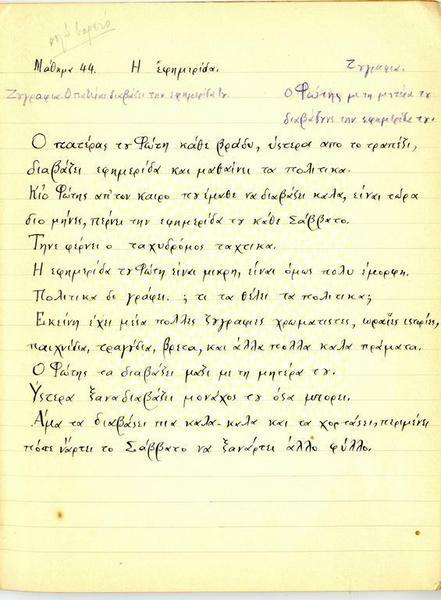 Μάθημα 44. Η ἐφημερίδα. Ζυγραφια.
Ζυγραφια. Ο πατέρας διαβάζει την εφημερίδα τυ.
Ο Φώτης με τη μητέρα τυ
διαβάζυνε την εφημερίδα τυ.
Ο πατέρας τυ Φώτη κάθε βράδυ, ύστερα απο το τραπέζι,
διαβάζει εφημερίδα και μαθαίνει τα πολιτικα.
Κι ο Φώτης απ' τον καιρο πυ έμαθε να διαβάζει καλα, είναι τώρα
διο μήνες, πέρνει την εφημερίδα τυ κάθε Σάββατο.
Τηνε φέρνει ο ταχυδρόμος ταχτικα.
Η εφημερίδα τυ Φώτη είναι μικρη, είναι όμως πολυ έμορφη.
Πολιτικα δε γράφει. ; τι τα θέλει τα πολιτικα;
Εκείνη έχει μέσα πολλες ζυγραφιες χρωματιστες, ωραίες ιστορίες,
παιχνίδια, τραγύδια, βρετα, και άλλα πολλα καλα πράματα.
Ο Φώτης τα διαβάζει μαζι με τη μητέρα τυ.
Ύστερα ξαναδιαβάζει μονάχος τυ όσα μπορει.
Άμα τα διαβάσει πια καλα-καλα και τα χορτάσει, περιμένει
πότε νἄρτει το Σάββατο να ξανάρτει άλλο φύλλο.